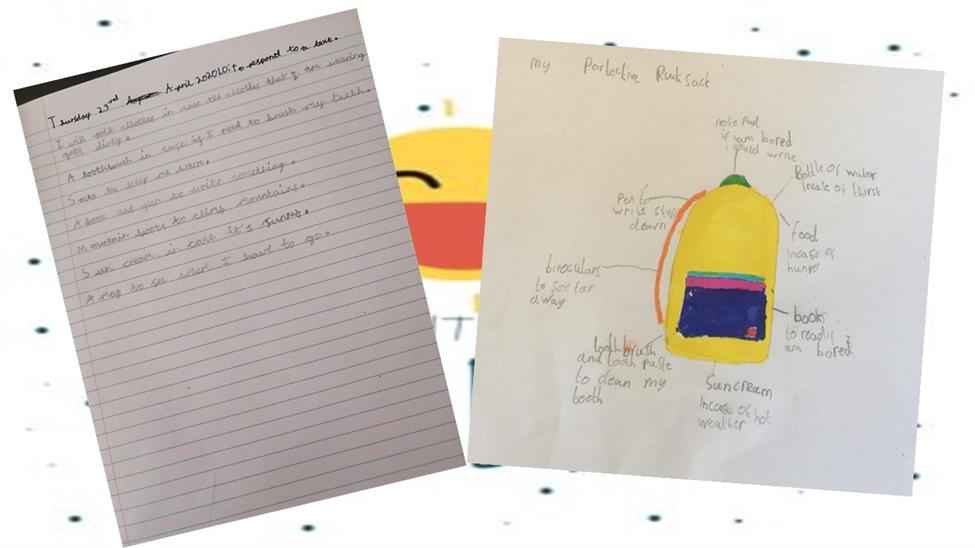 Thursday 23rd April 2020 LO: to respond to a text.
I will pack clothes in case the clothes that I am wearing
gets dirty.
A toothbrush in case if I need to brush my teeth.
Socks to keep me warm.
A book and pen to write something.
Mountain boots to climp mountains.
Sun cream in case it's sunny.
A map to see where I have to go.
my Portective Rucksack
note Pad
if i am bored
i could write
Bottle of water
incase of thirst
Pen to
write stuff
down
food
incase of
hunger
binoculars
to see far
away
books
to read if i
am bored
tooth brush
and tooth paste
to clean my
teeth
Suncream
incase of hot
weather